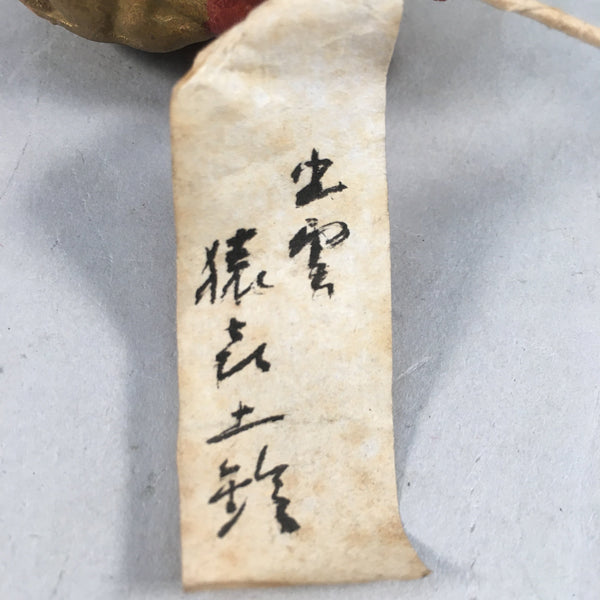 出雲
猿土鈴